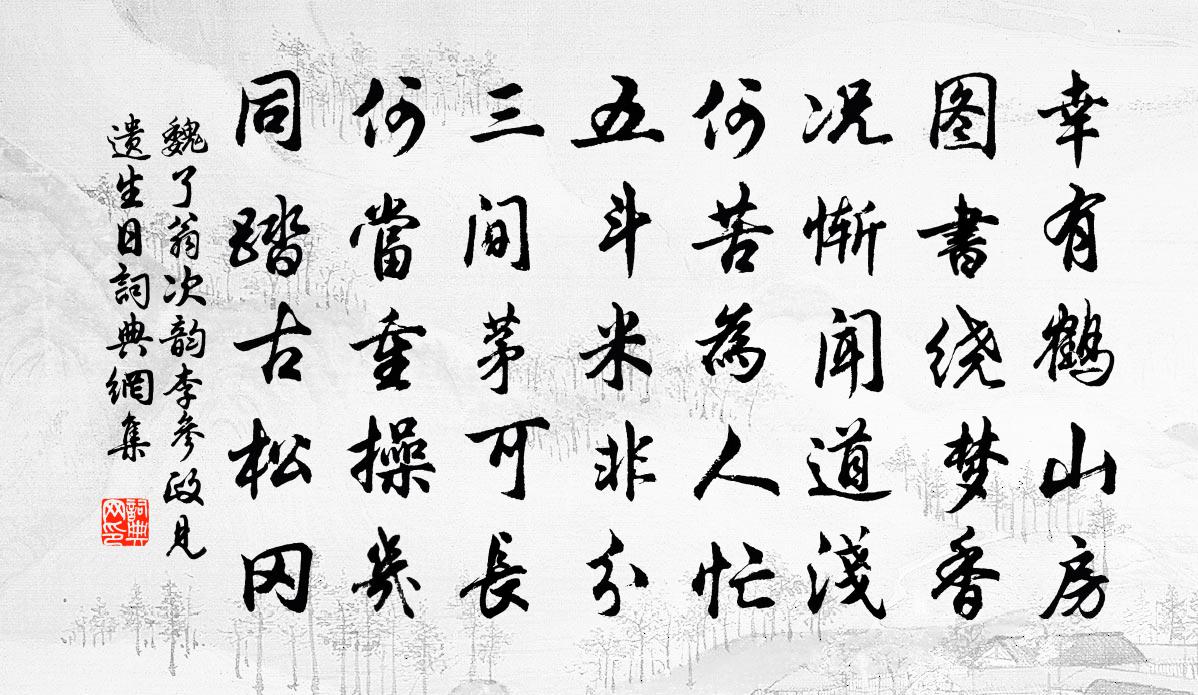 幸有鹤山房
图書绕梦香
况惭闻道淺
何苦為人忙
五斗米非分
三间茅可長
何當重操幾
同踏古松冈
魏了翁次韵李參政见
遗生日詞典網集
詞典网印